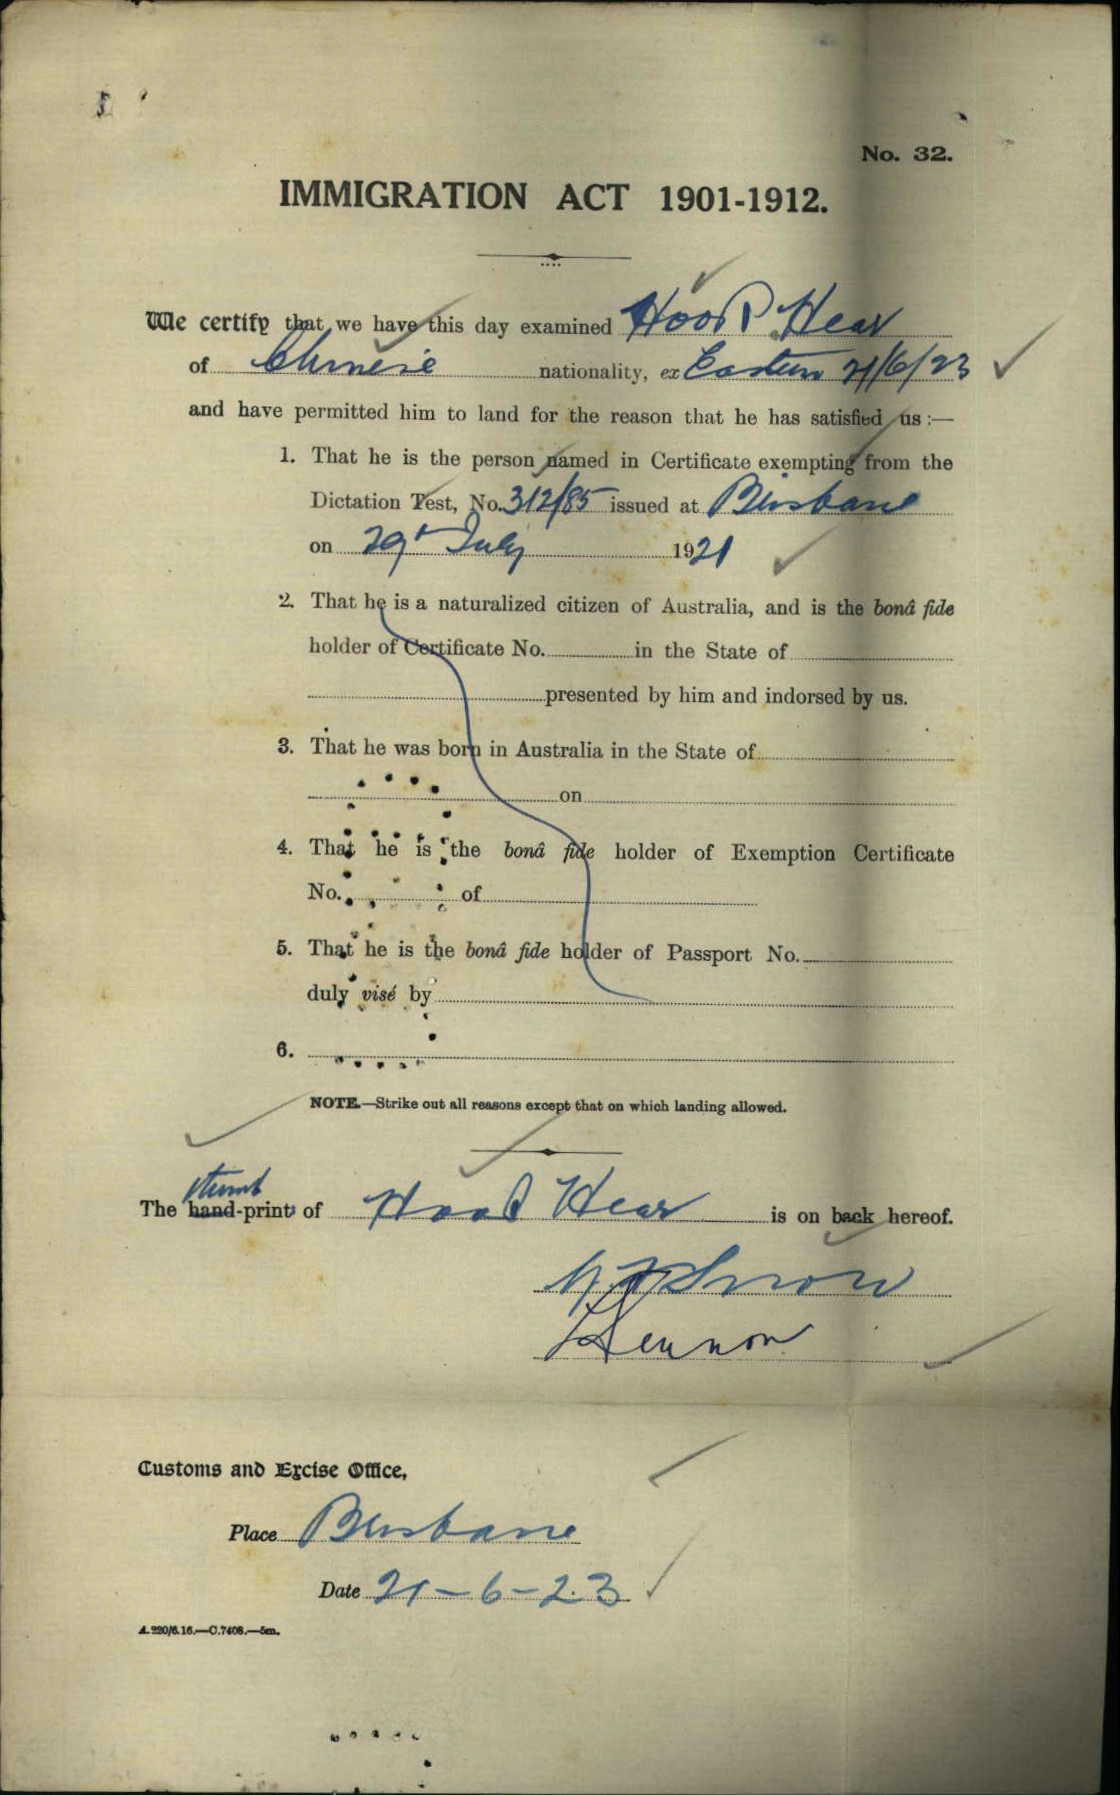 No. 32.
IMMIGRATION ACT 1901-1912.
We certify that we have this day examined Hood Hear
of Chinese nationality, ex Eastern 21/6/23
and have permitted him to land for the reason that he has satisfied us :—
1. That he is the person named in Certificate exempting from the
Dictation Test, No. 312/85 issued at Brisbane
on 29th July 1921
2. That he is a naturalized citizen of Australia, and is the bonâ fide
holder of Certificate No. in the State of
presented by him and indorsed by us.
3. That he was born in Australia in the State of
on
4. That he is the bonâ fide holder of Exemption Certificate
No. of
5. That he is the bonâ fide holder of Passport No.
duly visé by
6.
NOTE.—Strike out all reasons except that on which landing allowed.
thumb
The hand-prints of Hood Hear is on back hereof.
Snow
Lennon
Customs and Excise Office,
Place Brisbane
Date 21-6-23
A.220/6.16.—C.7408.—5m.